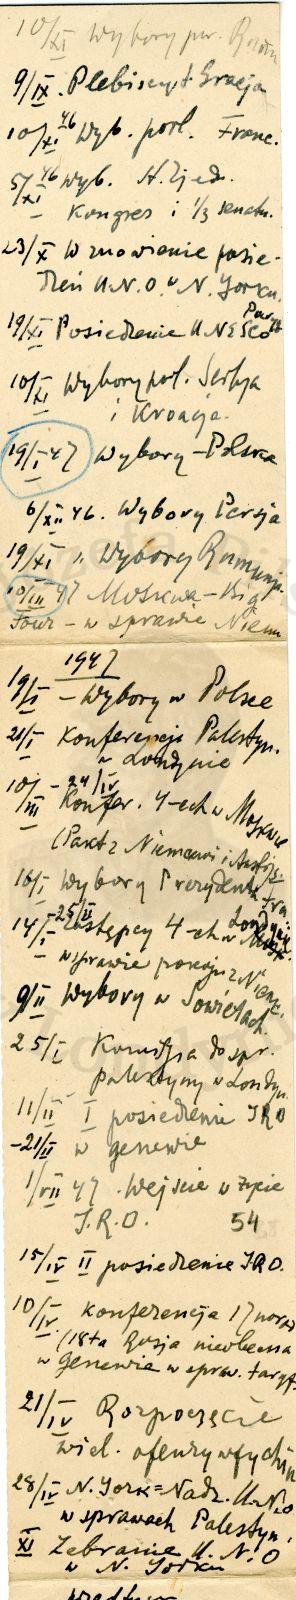 10/XI Wybory
9/IX. Plebiscyt Grecja
10/XI 46 Wyb. parl. Franc.
5/XI 46 Wyb. St. Zjedn.
Kongres i 1/3 senatu.
23/X Wznowienie posie-
dzeń U.N.O. w N. Yorku.
19/XI Posiedzenie UNESCO Paryż
10/XI Wybory parl. Serbja
i Kroacja.
19/I 47 Wybory - Polska
6/XII 46. Wybory Persja
19/XI " Wybory Rumunja.
10/III 47 Moskwa - Big
Four - w sprawie Niem
1947
19/I - Wybory w Polsce
21/I Konferencja Palestyn.
w Londynie
10/III - 24/IV Konfer. 4-ech w Moskwie
(Pakt z Niemcami i Austrją.
16/I Wybory Prezydenta Fra.
14/I - 25/II Zastępcy 4-ech w Londynie
w sprawie pokoju z Niemc.
9/II Wybory w Sowietach.
25/I Komisja do spr.
Palestyny w Londyn.
11/II I posiedzenie IRO
-21/II w Genewie
1/VII 47. Wejście w życie
I.R.O. 54
15/IV II posiedzenie IRO.
10/IV Konferencja 17 narod
(18ta Rosja nieobecna
w Genewie w spraw. taryf.
21/IV Rozpoczęcie
wiel. ofenzywy Chin
28/IV N. York = Nadz. U.N.O
w sprawach Palestyn.
XI Zebranie U.N.O
w N. Yorku